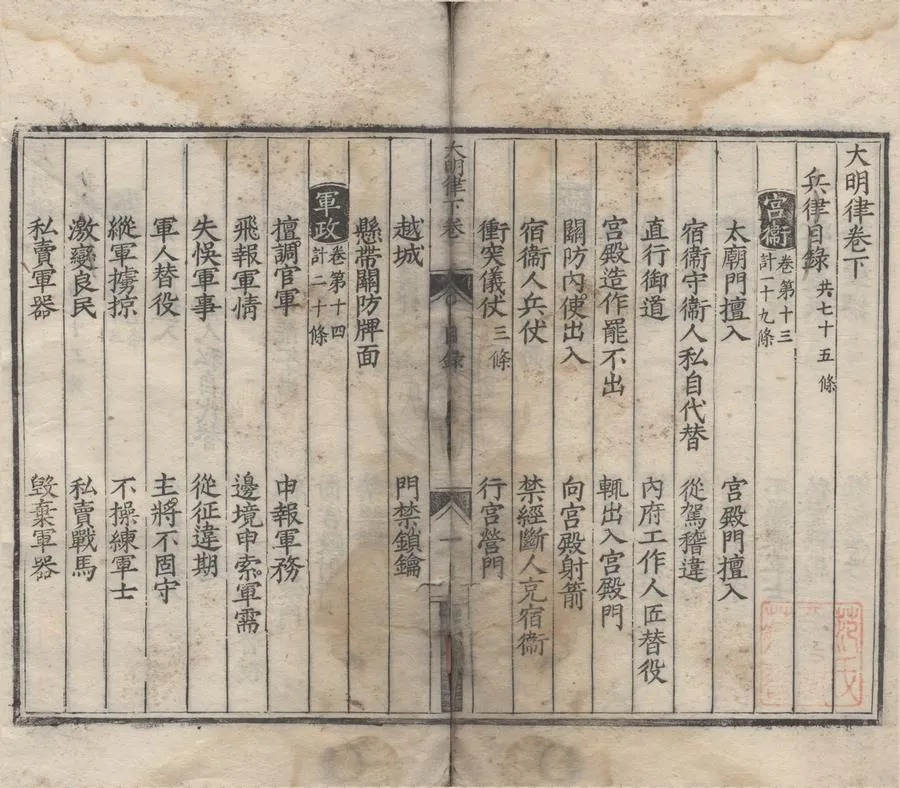 大明律卷下
兵律目録 共七十五條
宮衞 卷第十三 計一十九條
太廟門擅入 宮殿門擅入
宿衞守衞人私自代替 從駕稽違
直行御道 內府工作人匠替役
宮殿造作罷不出 輒出入宮殿門
關防內使出入 向宮殿射箭
宿衞人兵仗 禁經斷人充宿衞
衝突儀仗 三條 行宮營門
大明律下卷 目録 一
越城 門禁鎖鑰
懸帶關防牌面
軍政 卷第十四 計二十條
擅調官軍 申報軍務
飛報軍情 邊境申索軍需
失悞軍事 從征違期
軍人替役 主將不固守
縱軍擄掠 不操練軍士
激變良民 私賣戰馬
私賣軍器 毀棄軍器